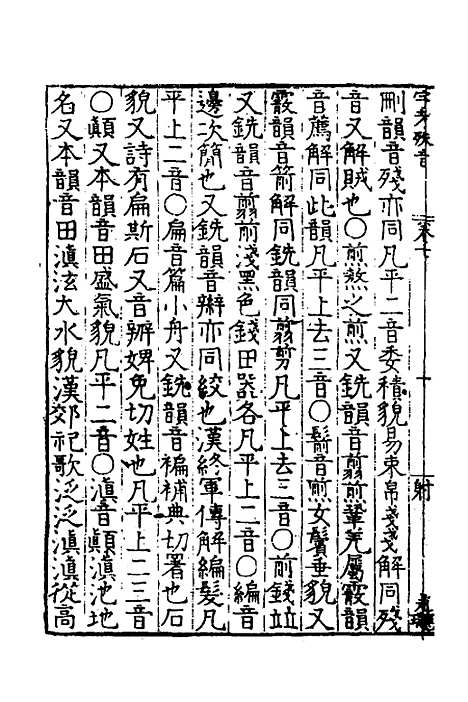 刪韻音殘亦同凡平二音委積貌易束帛戔戔解同殘
音又解賊也○煎熬之煎又銑韻音翦煎鞏羌屬霰韻
音薦解同此韻凡平上去三音○鬋音煎女鬢垂貌又
霰韻音箭解同銑韻同翦剪凡平上去三音○前錢竝
又銑韻音翦前淺黑色錢田器各凡平上二音○編音
邊次簡也又銑韻音辮亦同絞也漢終軍傳解編髮凡
平上二音○扁音篇小舟又銑韻音褊補典切署也石
貌又詩有扁斯石又音辨婢免切姓也凡平上二三音
○顛又本韻音田盛氣貌凡平二音○滇音顛滇池地
名又本韻音田滇泫大水貌漢郊祀歌泛泛滇滇從高
卷十
十
射